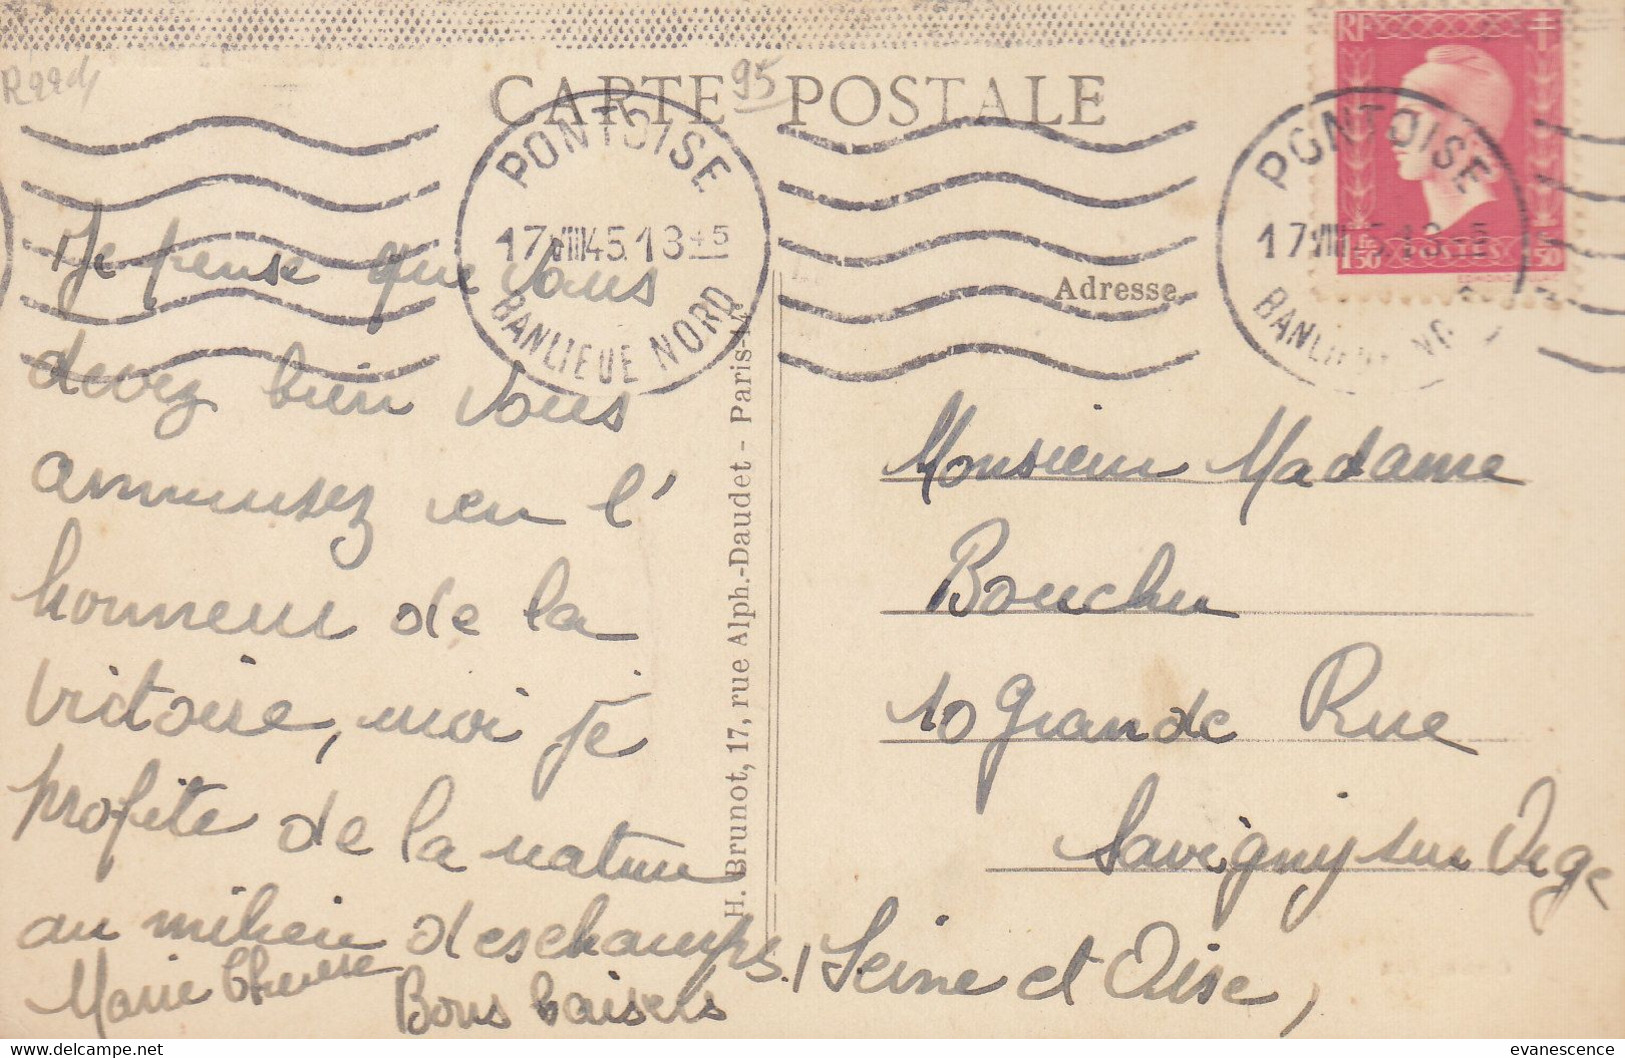 R22d
CARTE POSTALE
95
PONTOISE
17 VIII 45 . 1345
BANLIEUE NORD
PONTOISE
17 VIII 45 . 1345
BANLIEUE NORD
RF
1fr
50
POSTES
1fr
50
Adresse
Je pense que vous
devez bien vous
ammusez en l'
honneur de la
victoire, moi je
profite de la nature
au milieu des champs.
Marie Thérèse
Bons baisers
H. Brunot, 17, rue Alph.-Daudet - Paris-14
Monsieur Madame
Bouchu
10 Grande Rue
Savigny sur Orge
Seine et Oise,
evanescence